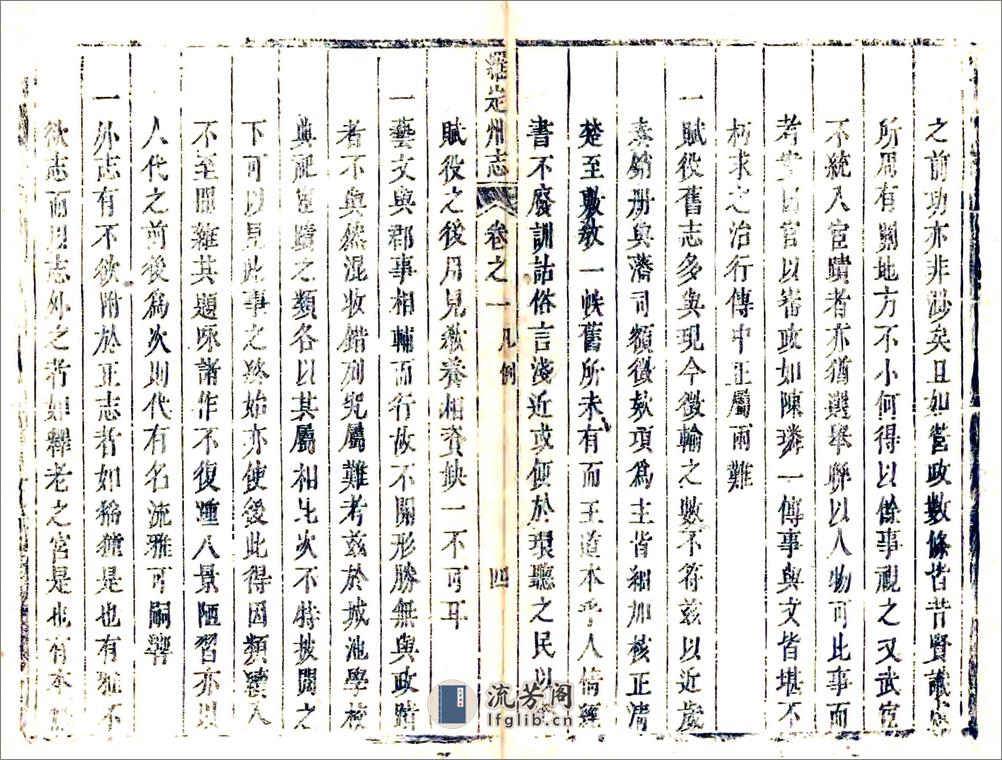 之前功亦非渺矣且如營政數條皆昔賢議
所周有關地方不小何得以餘事視之又武官
不統入宦蹟者亦猶選舉聯以人物可比事而
考安
因官以審政如陳璘一傳事與文皆堪不
朽求之治行傳中正屬兩難
一賦役舊志多與現今徵輸之數不符茲以近歲
奏銷册與藩司額徵欵項為主皆細加核正清
楚至數敎一帙舊所未有而王道本乎人情經
書不廢訓詁俗言淺近或便於環聽之民以
賦役之後用見教養相資缺一不可耳
一藝文與郡事相輔而行故不關形勝無與政蹟
者不與然混收錯列究屬難考茲於城池學校
典祀宦蹟之類各以其屬相比次不特披閱之
下可以見此事之終始亦使後此得因類續入
不至混雜其題咏諸作不復踵八景陋習亦以
人代之前後為次則代有名流雅可嗣響
一外志有不欲附於正志者如猺獞是也有雅不
欲志而以志外之者如釋老之宮是也有
羅定州志
卷之一
凡例
四
流芳阁
lfglib.cn